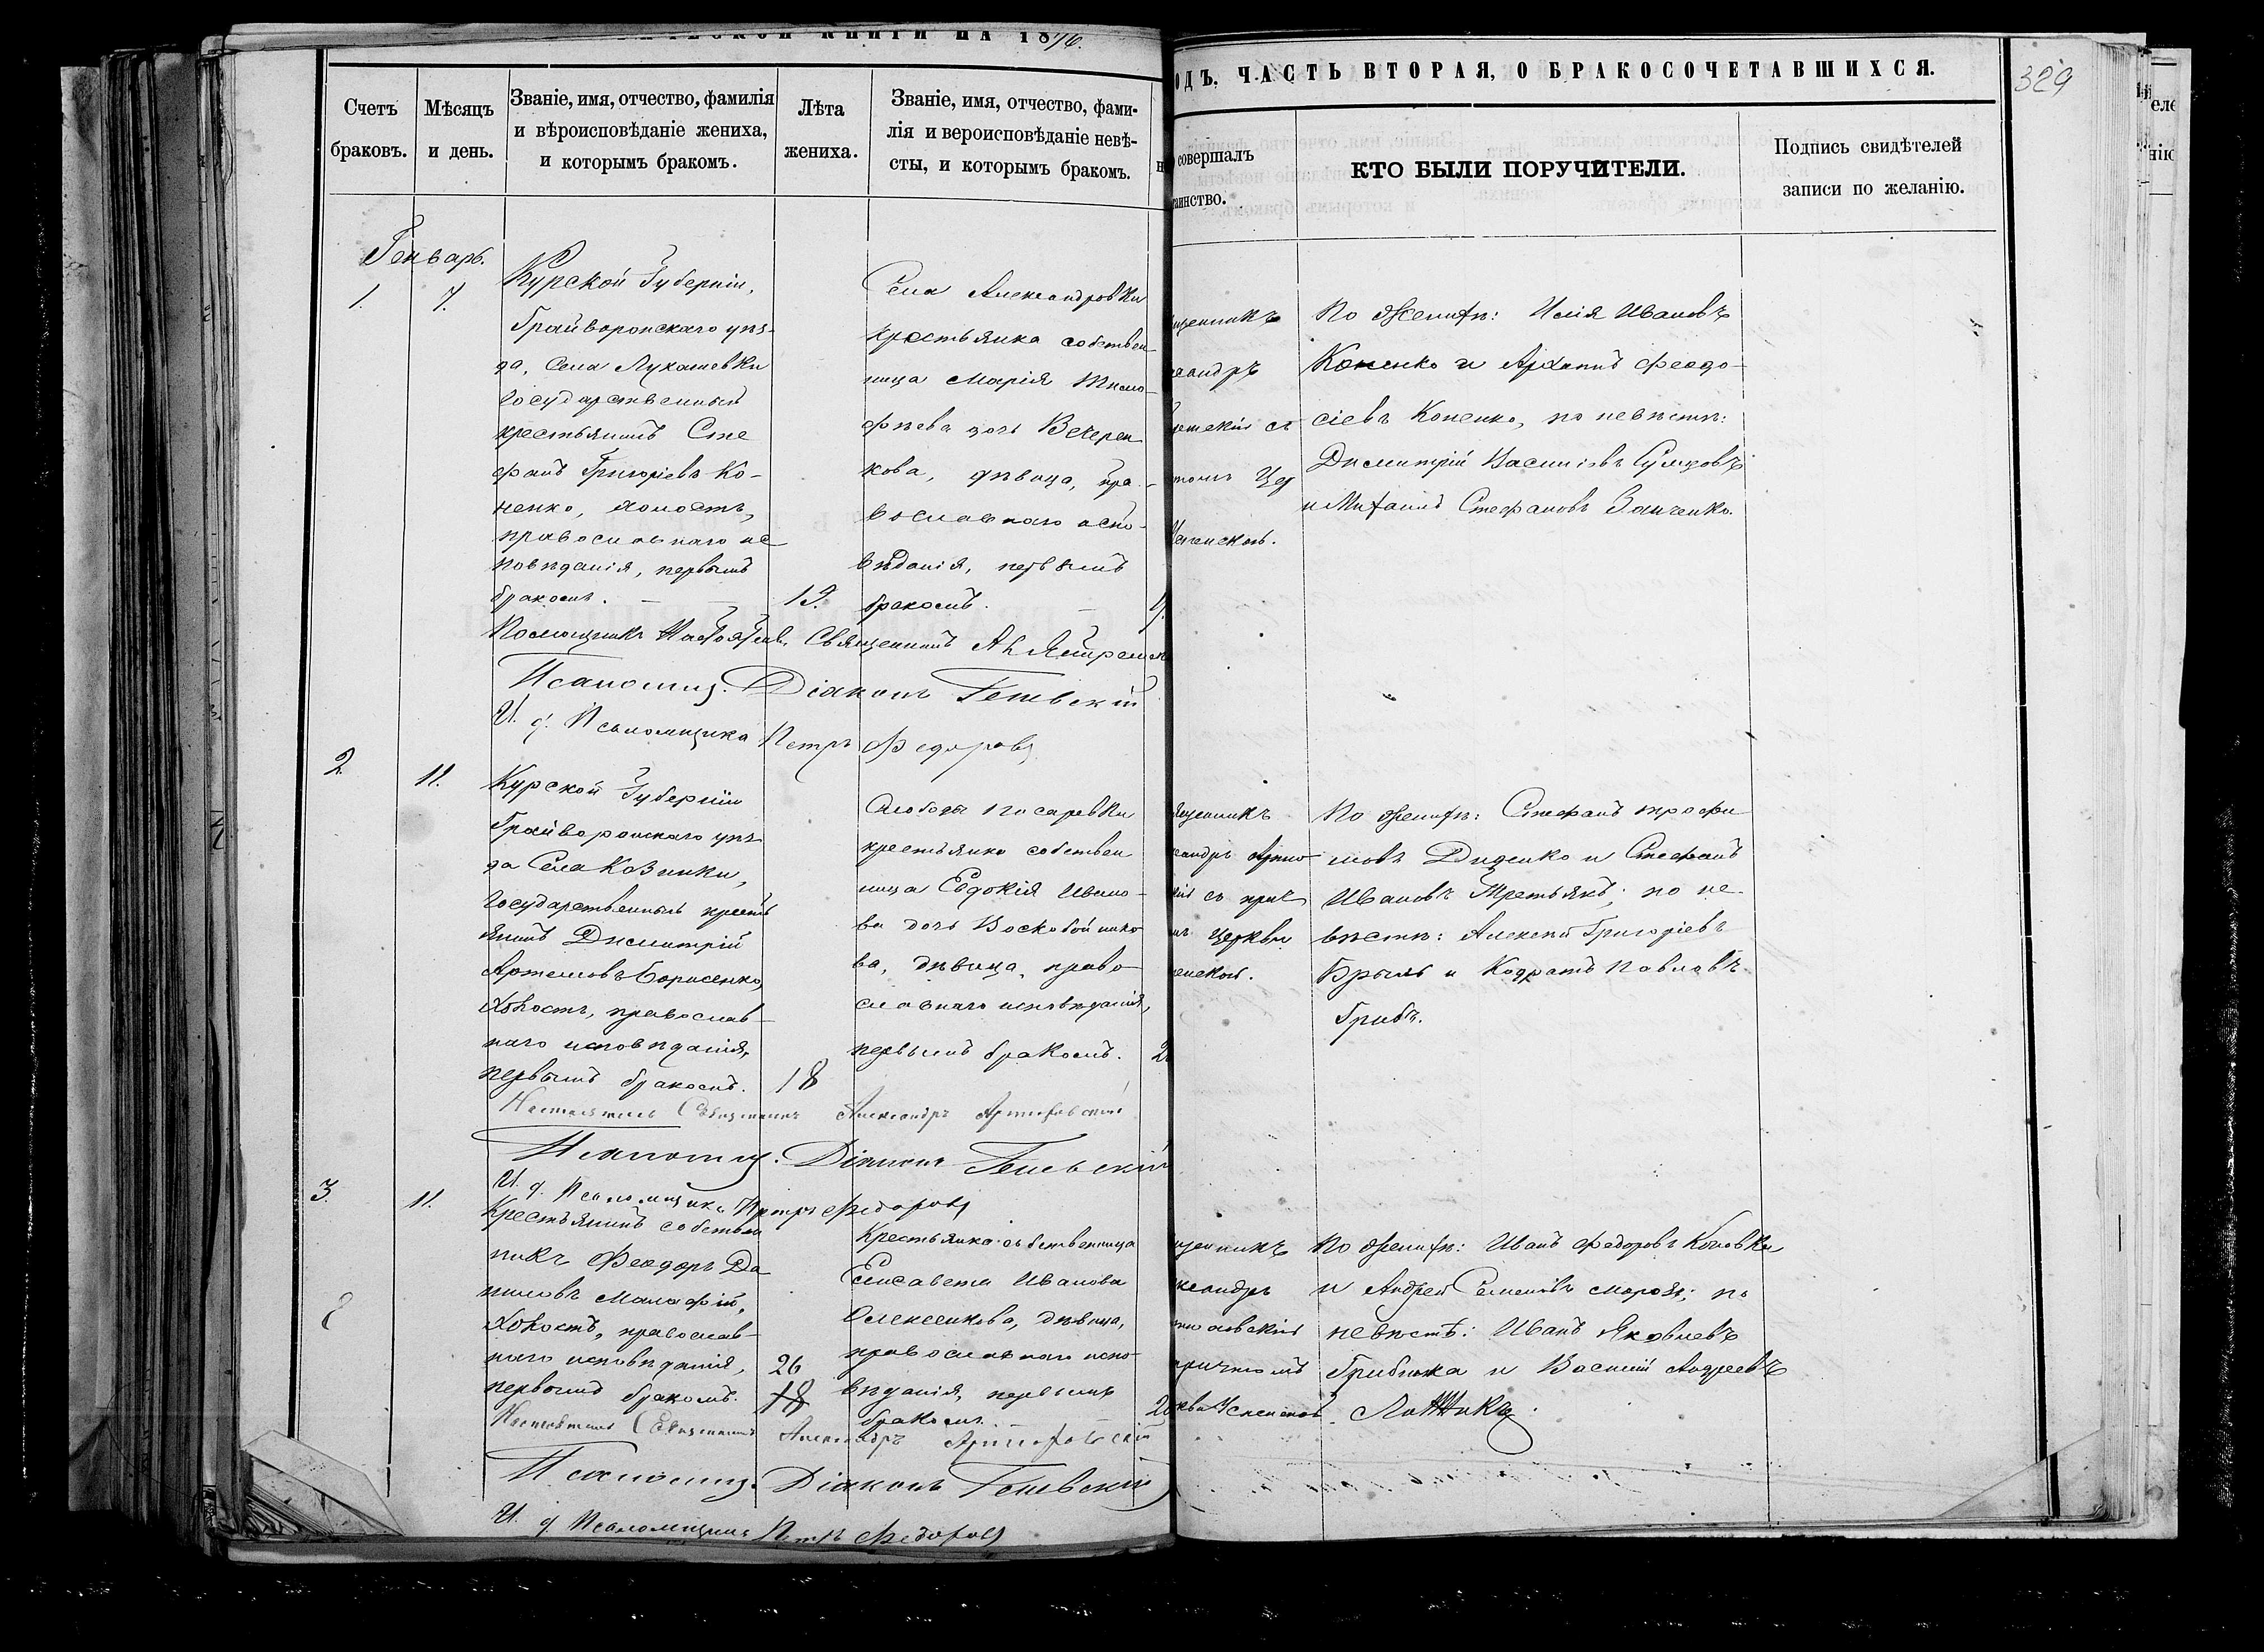 КНИГИ НА 1876.
ОДЪ, ЧАСТЬ ВТОРАЯ, О БРАКОСОЧЕТАВШИХСЯ.
329
Счетъ
браковъ.
Мѣсяцъ
и день.
Званіе, имя, отчество, фамилія
и вѣроисповѣданіе жениха,
и которымъ бракомъ.
Лѣта
жениха.
Званіе, имя, отчество, фами-
лія и вероисповѣданіе невѣ-
сты, и которымъ бракомъ.
совершалъ
таинство.
КТО БЫЛИ ПОРУЧИТЕЛИ.
Подпись свидѣтелей
записи по желанію.
Генварь.
1.
7.
Курской Губерніи,
Грайворонскаго уѣз-
да, Села Лукашевки
Государственный
крестьянинъ Сте
фанъ Григоріевъ Ко-
ненко, холостъ,
православнаго ис
повѣданія, первымъ
бракомъ.
19.
Села Александровки
крестьянка собствен
ница Марія Тимо-
фѣева дочь Вечерен
кова, дѣвица, пра-
вославнаго испо-
вѣданія, первымъ
бракомъ.
щенникъ
сандръ
съ
томъ Цер
Успенской.
По женихѣ: Илія Ивановъ
Коненко и Архипъ Феодо-
сіевъ Коненко, по невѣстѣ:
Димитрій Васильевъ
и Михаилъ Стефановъ Заиченко.
Помощникъ Настоятеля Священникъ
Псаломщ. Діаконъ Геневскій
И. д. Псаломщика Петръ Федоровъ
2
11.
Курской Губерніи
Грайворонскаго уѣз
да Села Козинки,
Государственный кресть
янинъ Димитрій
Артемовъ Борисенко,
холостъ, православ-
наго исповѣданія,
первымъ бракомъ.
18
Слободы Писаревки
крестьянка собствен
ница Евдокія Ивано-
ва дочь Воскобойнико
ва, дѣвица, право-
славнаго исповѣданія,
первымъ бракомъ.
2
щенникъ
сандръ
съ прич
Церкви
По женихѣ: Стефанъ Трофи
мовъ Диденко и Стефанъ
Ивановъ Третьякъ; по не-
вѣстѣ: Алексѣй Григоріевъ
Брыль и Кодратъ Павловъ
Грибъ.
Настоятель Священникъ Александръ
Псаломщ. Діаконъ Геневскій
И. д. Псаломщика Петръ Федоровъ
3.
11.
Крестьянинъ собствен
никъ Феодоръ Да
ниловъ Малафій,
холостъ, православ-
наго исповѣданія,
первымъ бракомъ.
26
18
Крестьянка собственница
Елисавета Иванова
Олексенкова, дѣвица,
православнаго испо-
вѣданія, первымъ
бракомъ.
щенникъ
ксандръ
причтомъ
По женихѣ: Иванъ Федоровъ
и Андрей Семеновъ Морозъ; по
невѣстѣ: Иванъ Яковлевъ
и Василій Андреевъ
Настоятель Священникъ Александръ
Псаломщ. Діаконъ Геневскій
И. д. Псаломщика Петръ Федоровъ